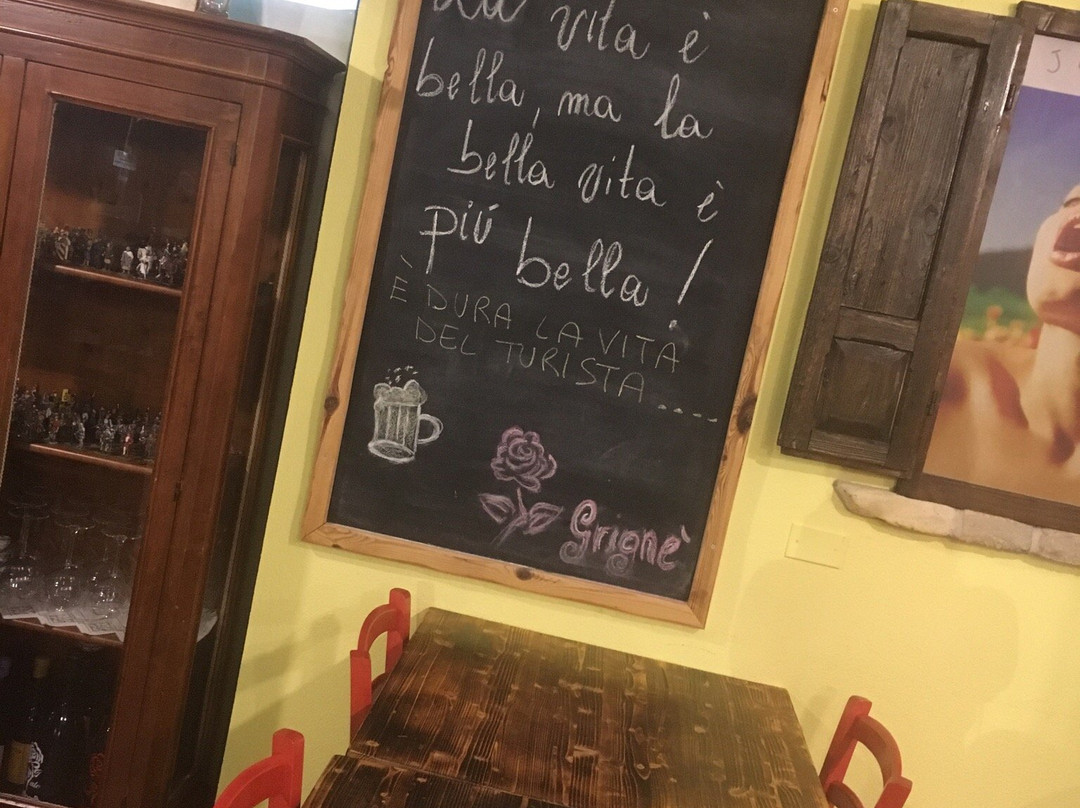 La vita è
bella, ma la
bella vita è
piú bella!
È DURA LA VITA
DEL TURISTA....
Grignè
J